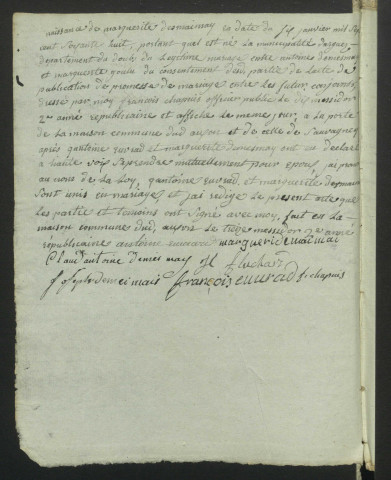 naissance de marguerite demaimay en date du 14 janvier mil sept
cent soixante huit, portant que est née la municipalité
departement du doubs du legitime mariage entre antoine demaimay
et marguerite du consentement d'une partie de l'acte de
publication de promesse de mariage entre les futur conjoints
dressé par moy françois chapuis officier public le dix messidor
2me année republicaine et affiché le meme jour, a la porte
de la maison commune dud auxon et de celle de sauvagney
après qu'antoine euvrard et marguerite demesmay ont eu declaré
a haute voix se prendre mutuellement pour epoux, j'ai prononcé
au nom de la loy, qu'antoine euvrard, et marguerite demesmay
sont unis en mariage, et j'ai redigé le present acte que
les partie et temoins ont signé avec moy, fait en la
maison commune dud auxon le treize messidor 2me année
républicaine antoine euvrard marguerite maimai
Claude antoine demesmay
joseph demeimais françois euvrard f chapuis